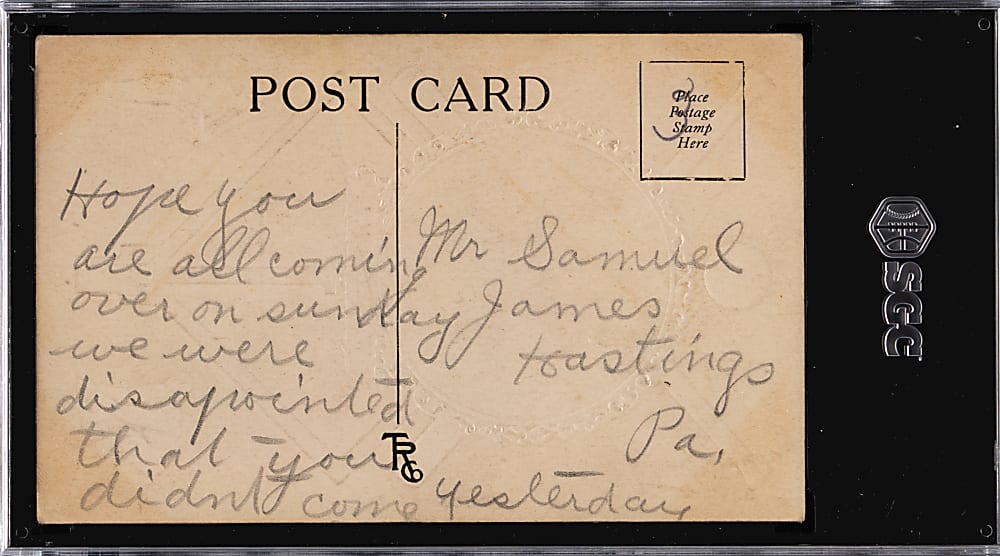 POST CARD
Place
Postage
Stamp
Here
3
Hope you
are all coming
over on sunday
we were
disapointed
that you
didnt come yesterday
Mr Samuel
James
Hastings
Pa.
TRG
SGC